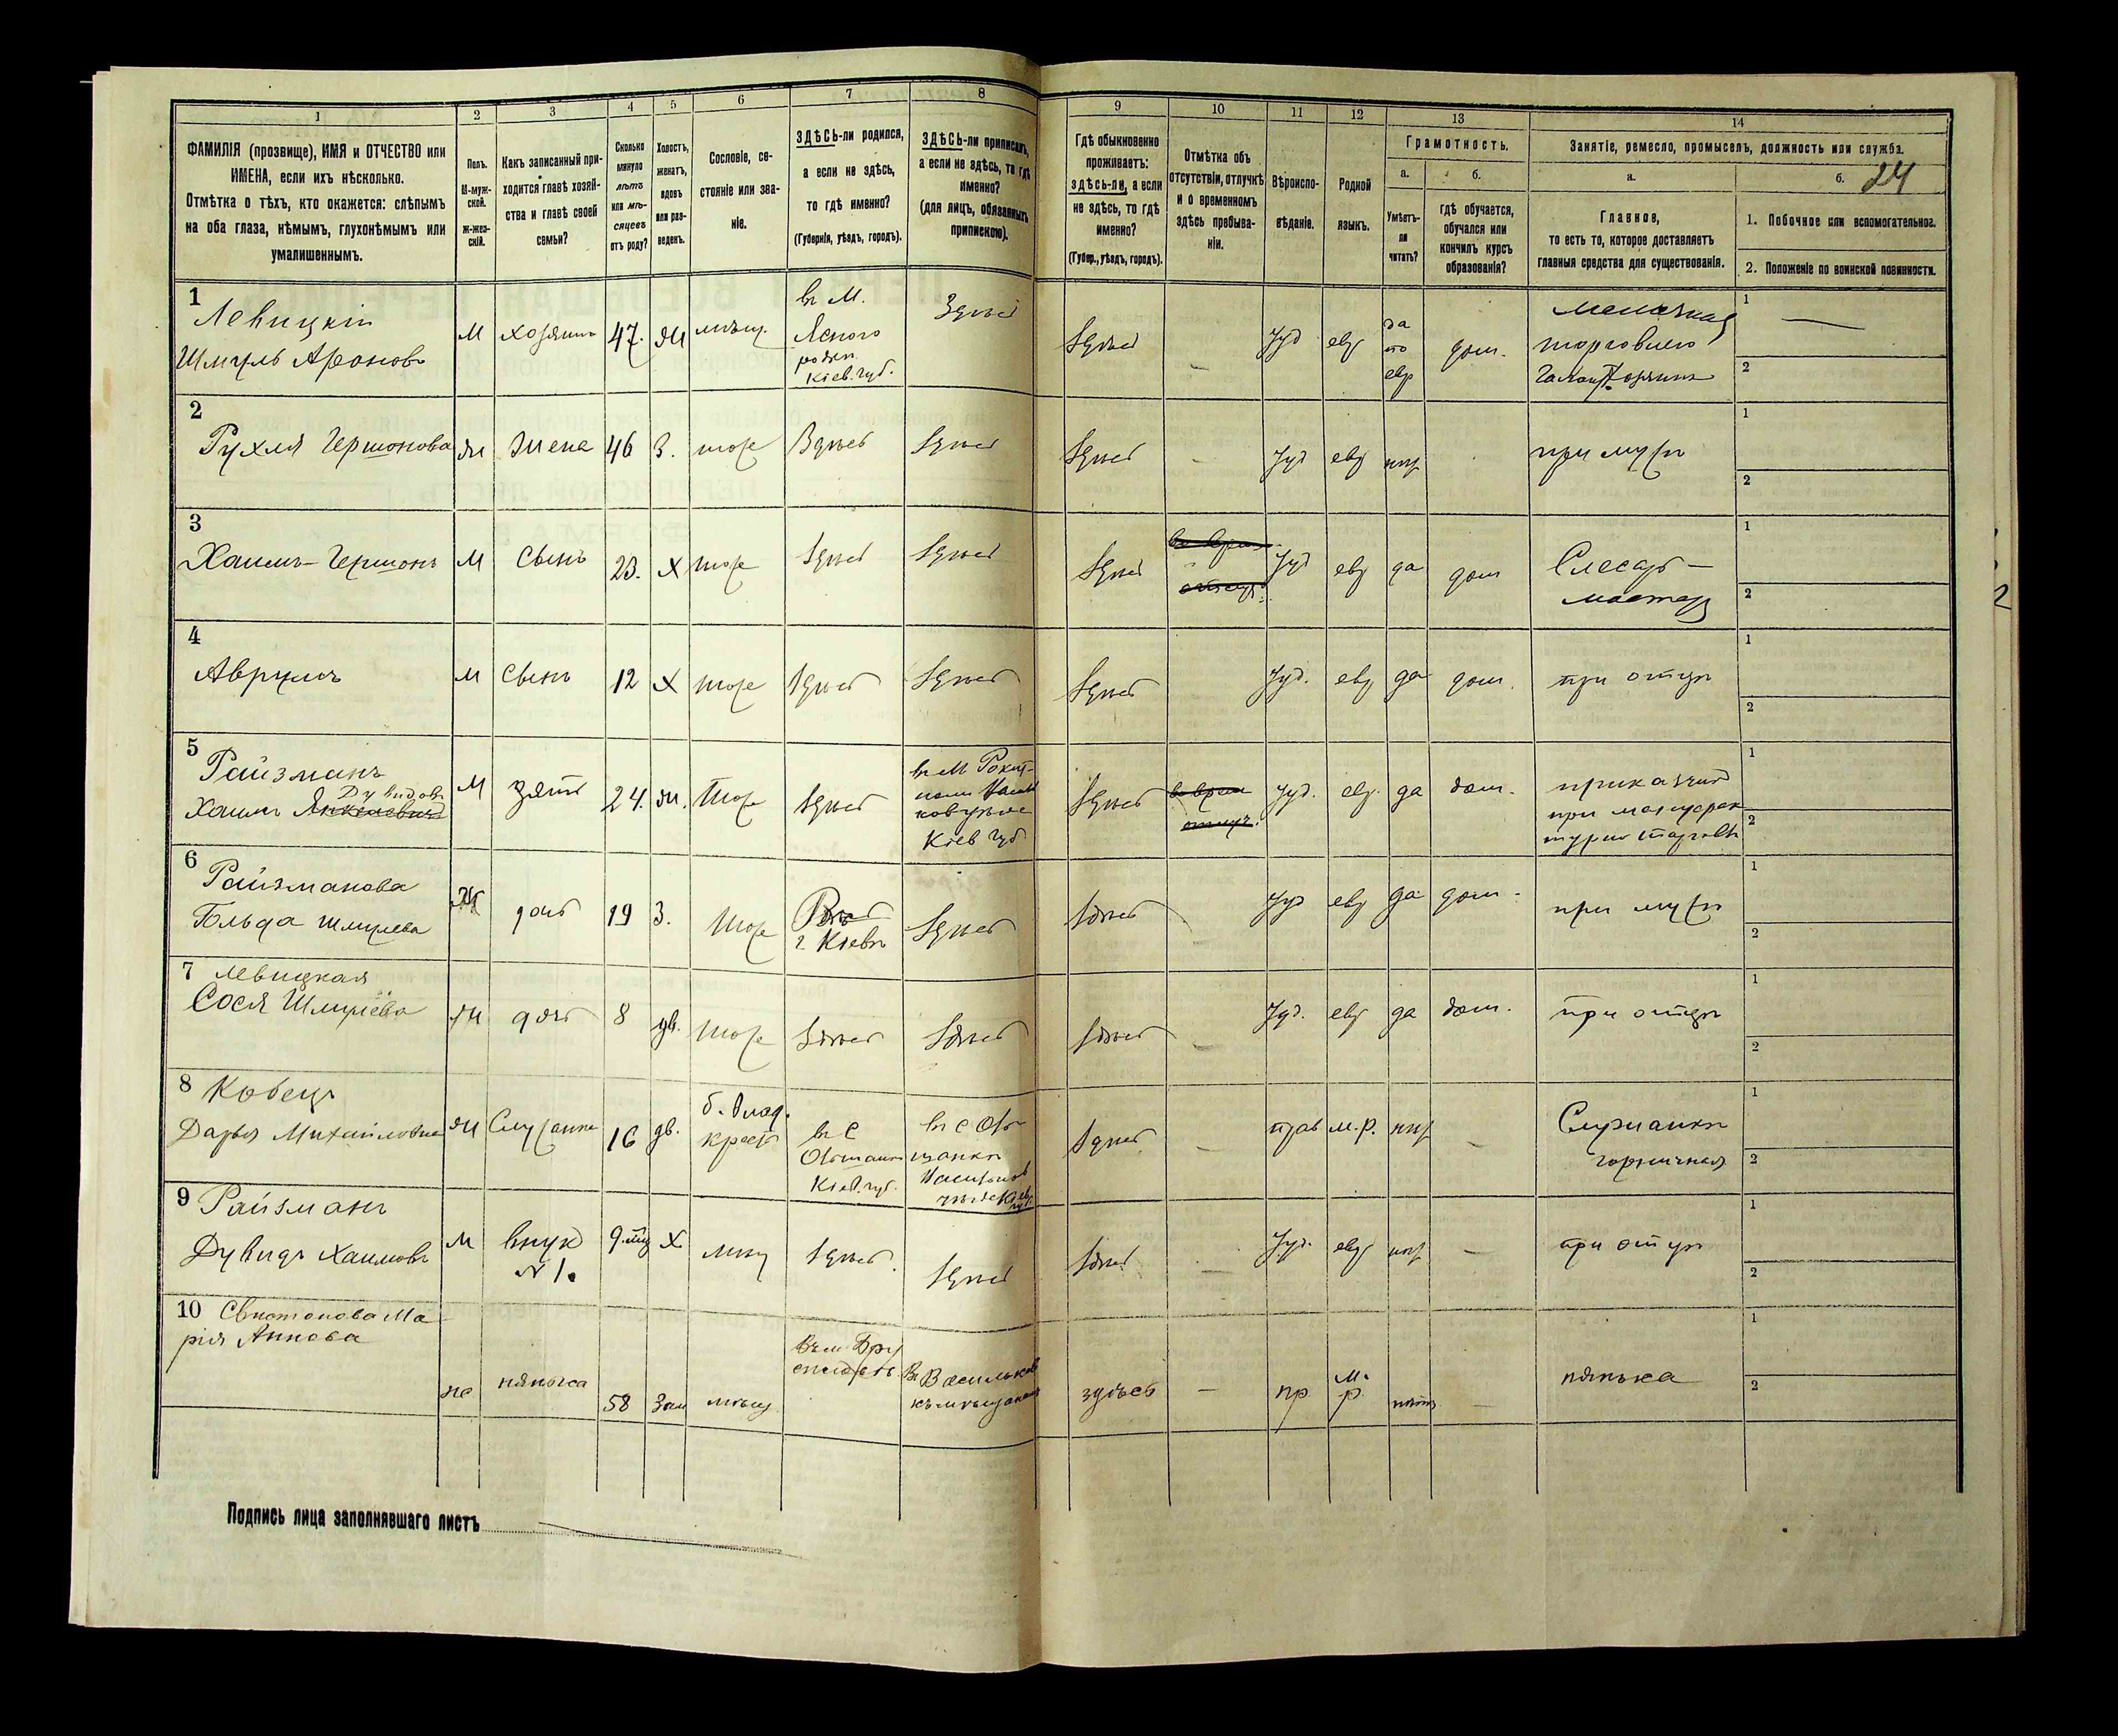 1 2 3 4 5 6 7 8 9 10 11 12 13 14
ФАМИЛІЯ (прозвище), ИМЯ и ОТЧЕСТВО или
ИМЕНА, если ихъ нѣсколько.
Отмѣтка о тѣхъ, кто окажется: слѣпымъ
на оба глаза, нѣмымъ, глухонѣмымъ или
умалишеннымъ.
Полъ.
М-муж-
ской.
Ж-жен-
скій.
Какъ записанный при-
ходится главѣ хозяй-
ства и главѣ своей
семьи?
Сколько
минуло
лѣтъ
или мѣ-
сяцевъ
отъ роду?
Холостъ,
женатъ,
вдовъ
или раз-
веденъ.
Сословіе, со-
стояніе или зва-
ніе.
ЗДѢСЬ-ли родился,
а если не здѣсь,
то гдѣ именно?
(Губернія, уѣздъ, городъ).
ЗДѢСЬ-ли приписанъ,
а если не здѣсь, то гдѣ
именно?
(для лицъ, обязанныхъ
припискою).
Гдѣ обыкновенно
проживаетъ:
здѣсь-ли, а если
не здѣсь, то гдѣ
именно?
(Губер., уѣздъ, городъ).
Отмѣтка объ
отсутствіи, отлучкѣ
и о временномъ
здѣсь пребыва-
ніи.
Вѣроиспо-
вѣданіе.
Родной
языкъ.
Грамотность.
а.
Умѣетъ-
ли
читать?
б.
гдѣ обучается,
обучался или
кончилъ курсъ
образованія?
Занятіе, ремесло, промыселъ, должность или служба.
а.
Главное,
то есть то, которое доставляетъ
главныя средства для существованія.
б. 24
1. Побочное или вспомогательное.
2. Положеніе по воинской повинности.
1
Левицкій
Шмуль Ароновъ
М хозяинъ 47. Ж мѣщ.
въ М.
Кіев. губ.
Здѣсь
Здѣсь
Іуд евр
да
по
евр
дом.
мелочная
торговля
1
2
2
Рухля Гершонова Ж Жена 46 З. тоже Здѣсь Здѣсь
Здѣсь - Іуд евр нѣт при мужѣ
1
2
3
Хаимъ-Гершонъ М Сынъ 23. Х тоже Здѣсь Здѣсь
Здѣсь Іуд евр да дом
Слесарь-
мастер
1
2
4
Аврумъ М Сынъ 12 Х тоже Здѣсь Здѣсь
Здѣсь Іуд. евр да дом. при отцѣ
1
2
5
Райзманъ
Дувидов
Хаимъ Янкелевичъ
М зять 24. Ж. Тоже Здѣсь
Кіев губ
Здѣсь
Іуд. евр. да дом.
приказчик
1
2
6
Райзманова
Бльда Шмулева
Ж дочь 19 З. Тоже
г. Кіевѣ
Здѣсь
Здѣсь Іуд евр да дом. при мужѣ
1
2
7 Левицкая
Сося Шмулёва
Ж дочь 8 дѣ. Тоже Здѣсь Здѣсь
Здѣсь - Іуд. евр да дом. при отцѣ
1
2
8 Кобецъ
Дарья Михайловна Ж Служанка 16 дѣ.
крест
въ С
Кіев. губ.
въ С
Здѣсь - прав м.р. нѣт -
Служанка
горничная
1
2
9 Райзманъ
Дувидъ Хаимовъ М
внук
N 1.
Х мѣщ Здѣсь. Здѣсь
Здѣсь Іуд. евр нѣт - при отцѣ
1
2
10 Свистонова Ма-
рія Аннова
же нянька 58 Зам мѣщ
здѣсь - пр
м.
р.
нянька
1
2
Подпись лица заполнявшаго листъ